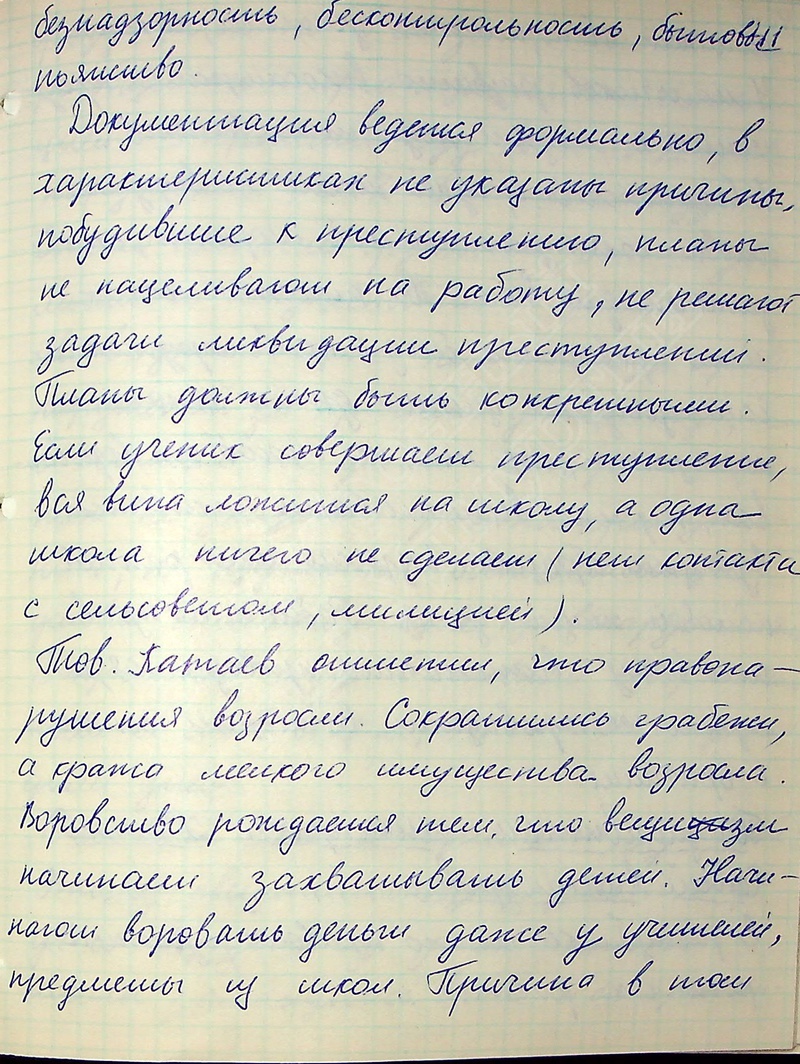 безнадзорность, бесконтрольность, бытовый
пьянство.
Документация ведется формально, в
характеристиках не указаны причины,
побудившие к преступлению, планы
не нацеливают на работу, не решают
задачи ликвидации преступлений.
Планы должны быть конкретными.
Если ученик совершает преступление,
вся вина ложится на школу, а одна
школа ничего не сделает (нет контакта
с сельсоветом, милицией).
Тов. Катаев отметил, что правона-
рушения возросли. Сократились грабежи,
а кража мелкого имущества возросла.
Воровство рождается тем, что вещизм
начинает захватывать детей. Начи-
нают воровать деньги даже у учителей,
предметы из школ. Причина в том